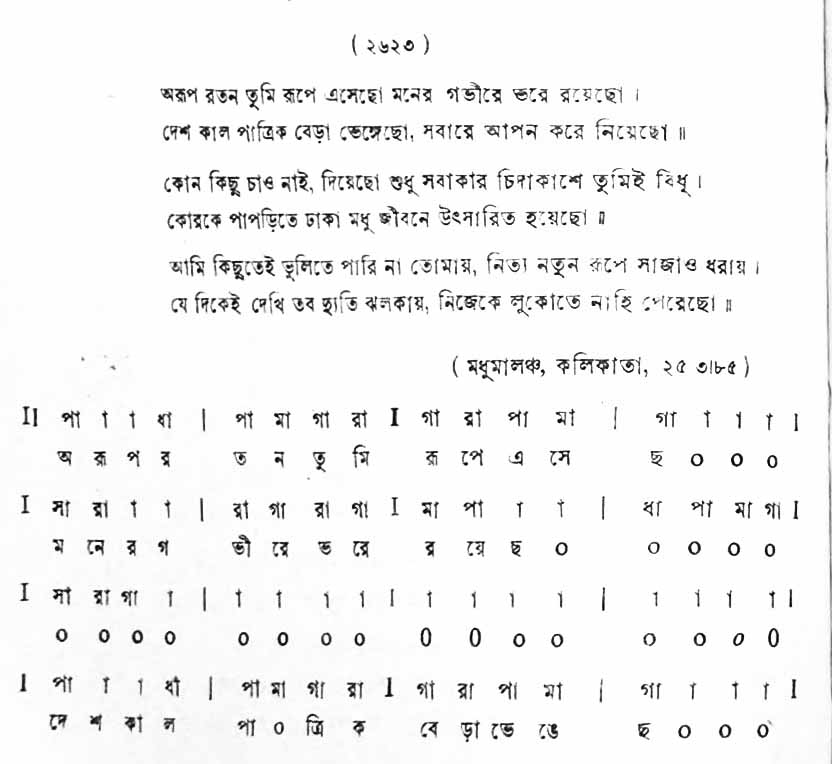 ( ২৬২৩ )
অরূপ রতন তুমি রূপে এসেছো মনের গভীরে ভরে রয়েছো ।
দেশ কাল পাত্রিক বেড়া ভেঙ্গেছো, সবারে আপন করে নিয়েছো ॥
কোন কিছু চাও নাই, দিয়েছো শুধু সবাকার চিদাকাশে তুমিই বিধু ।
কোরকে পাপড়িতে ঢাকা মধু জীবনে উৎসারিত হয়েছো ॥
আমি কিছুতেই ভুলিতে পারি না তোমায়, নিত্য নতুন রূপে সাজাও ধরায় ।
যে দিকেই দেখি তব দ্যুতি ঝলকায়, নিজেকে লুকোতে নাহি পেরেছো ॥
( মধুমালঞ্চ, কলিকাতা, ২৫ ৩।৮৫ )
II পা া া ধা | পা মা গা রা I গা রা পা মা | গা া া া I
অ রূ প র ত ন তু মি রূ পে এ সে ছ ০ ০ ০
I সা রা া া | রা গা রা গা I মা পা া া | ধা পা মা গা I
ম নে র গ ভী রে ভ রে র য়ে ছ ০ ০ ০ ০ ০
I সা রা গা া | া া া া I া া া া | া া া া I
০ ০ ০ ০ ০ ০ ০ ০ ০ ০ ০ ০ ০ ০ ০ ০
I পা া া ধা | পা মা গা রা I গা রা পা মা | গা া া া I
দে শ কা ল পা ০ ত্রি ক বে ড়া ভে ঙে ছ ০ ০ ০